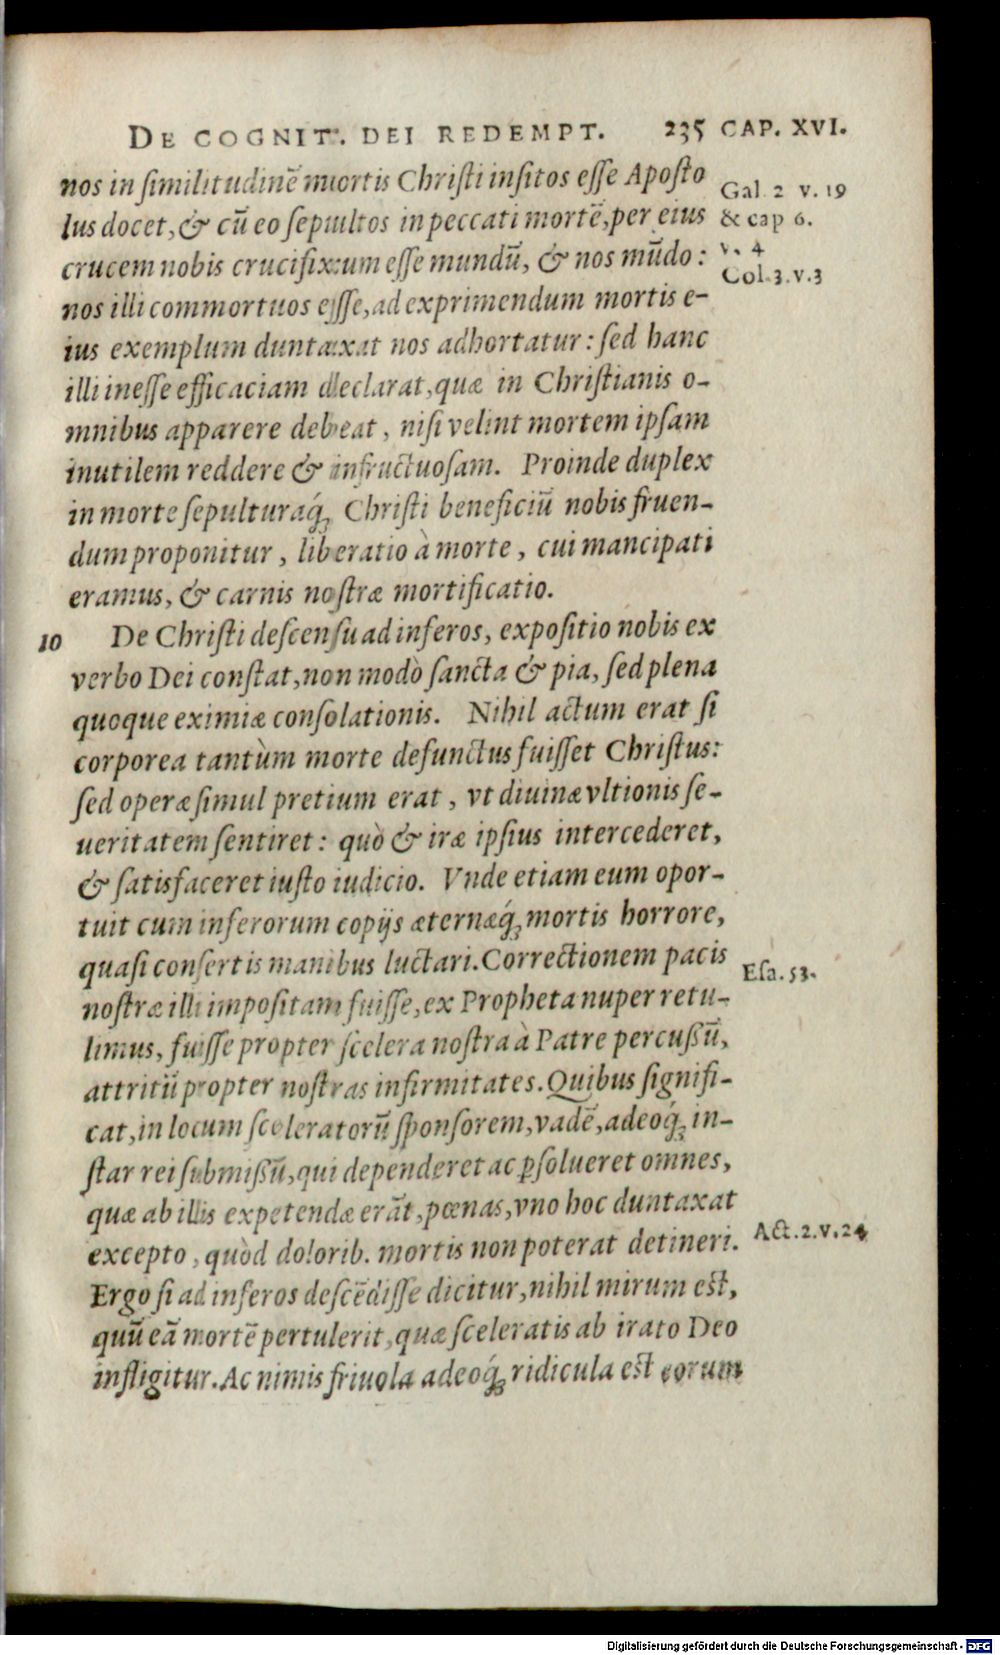 DE COGNIT. DEI REDEMPT. 235 CAP. XVI.
nos in similitudinē mortis Christi insitos esse Aposto
lus docet, & cū eo sepultos in peccati mortē, per eius
crucem nobis crucifixum esse mundū, & nos mūdo:
nos illi commortuos esse, ad exprimendum mortis e-
ius exemplum duntaxat nos adhortatur: sed hanc
illi inesse efficaciam declarat, quæ in Christianis o-
mnibus apparere debeat, nisi velint mortem ipsam
inutilem reddere & infructuosam. Proinde duplex
in morte sepulturaq́; Christi beneficiū nobis fruen-
dum proponitur, liberatio à morte, cui mancipati
eramus, & carnis nostræ mortificatio.
Gal. 2 v. 19
& cap 6.
v. 4
Col. 3. v. 3
10 De Christi descensu ad inferos, expositio nobis ex
verbo Dei constat, non modò sancta & pia, sed plena
quoque eximiæ consolationis. Nihil actum erat si
corporea tantùm morte defunctus fuisset Christus:
sed operæ simul pretium erat, vt diuinæ vltionis se-
ueritatem sentiret: quò & iræ ipsius intercederet,
& satisfaceret iusto iudicio. Vnde etiam eum opor-
tuit cum inferorum copijs æternæq́; mortis horrore,
quasi consertis manibus luctari. Correctionem pacis
nostræ illi impositam fuisse, ex Propheta nuper retu-
limus, fuisse propter scelera nostra à Patre percußū,
attritū propter nostras infirmitates. Quibus signifi-
cat, in locum sceleratorū sponsorem, vadē, adeoq́; in-
star rei submißū, qui dependeret ac ꝑsolueret omnes,
quæ ab illis expetendæ erāt, pœnas, vno hoc duntaxat
excepto, quòd dolorib. mortis non poterat detineri.
Ergo si ad inferos descēdisse dicitur, nihil mirum est,
quū eā mortē pertulerit, quæ sceleratis ab irato Deo
infligitur. Ac nimis friuola adeoq́; ridicula est eorum
Esa. 53.
Act. 2. v. 24
Digitalisierung gefördert durch die Deutsche Forschungsgemeinschaft - DFG